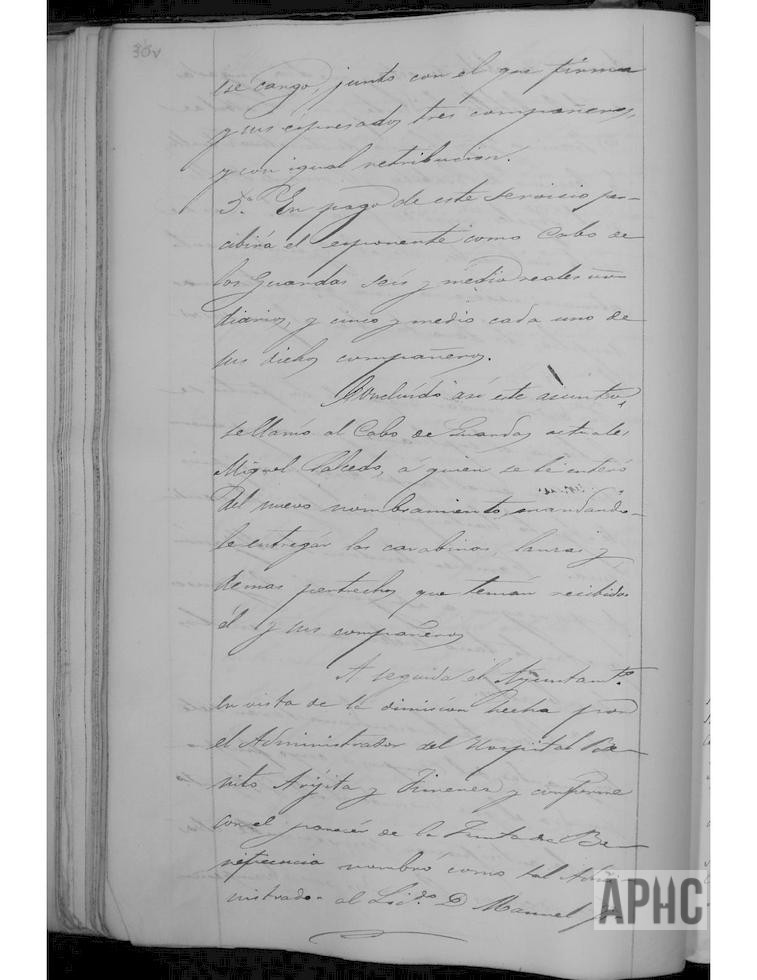 30v
ese cargo, junto con el que firma
y sus espresados tres compañeros,
y con igual retribucion.
3.ª En pago de este servicio per-
cibirá el esponente como Cabo de
los Guardas seis y medio reales
diarios, y cinco y medio cada uno de
sus dichos compañeros.
Concluído así este asunto,
se llamó al Cabo de Guardas actual,
Miguel Salcedo, á quien se le enteró
del nuevo nombramiento, mandando-
le entregár las carabinas, lanzas y
demas pertrechos que tenían recibidos
él y sus compañeros
A seguida el Ayuntam.to
en vista de la dimision hecha por
el Administrador del Hospital Be-
nito Arijita y Jimenez y conforme
con el parecér de la Junta de Be-
neficencia nombró como tal Admi-
nistrador al Licd.do D. Manuel
APHC